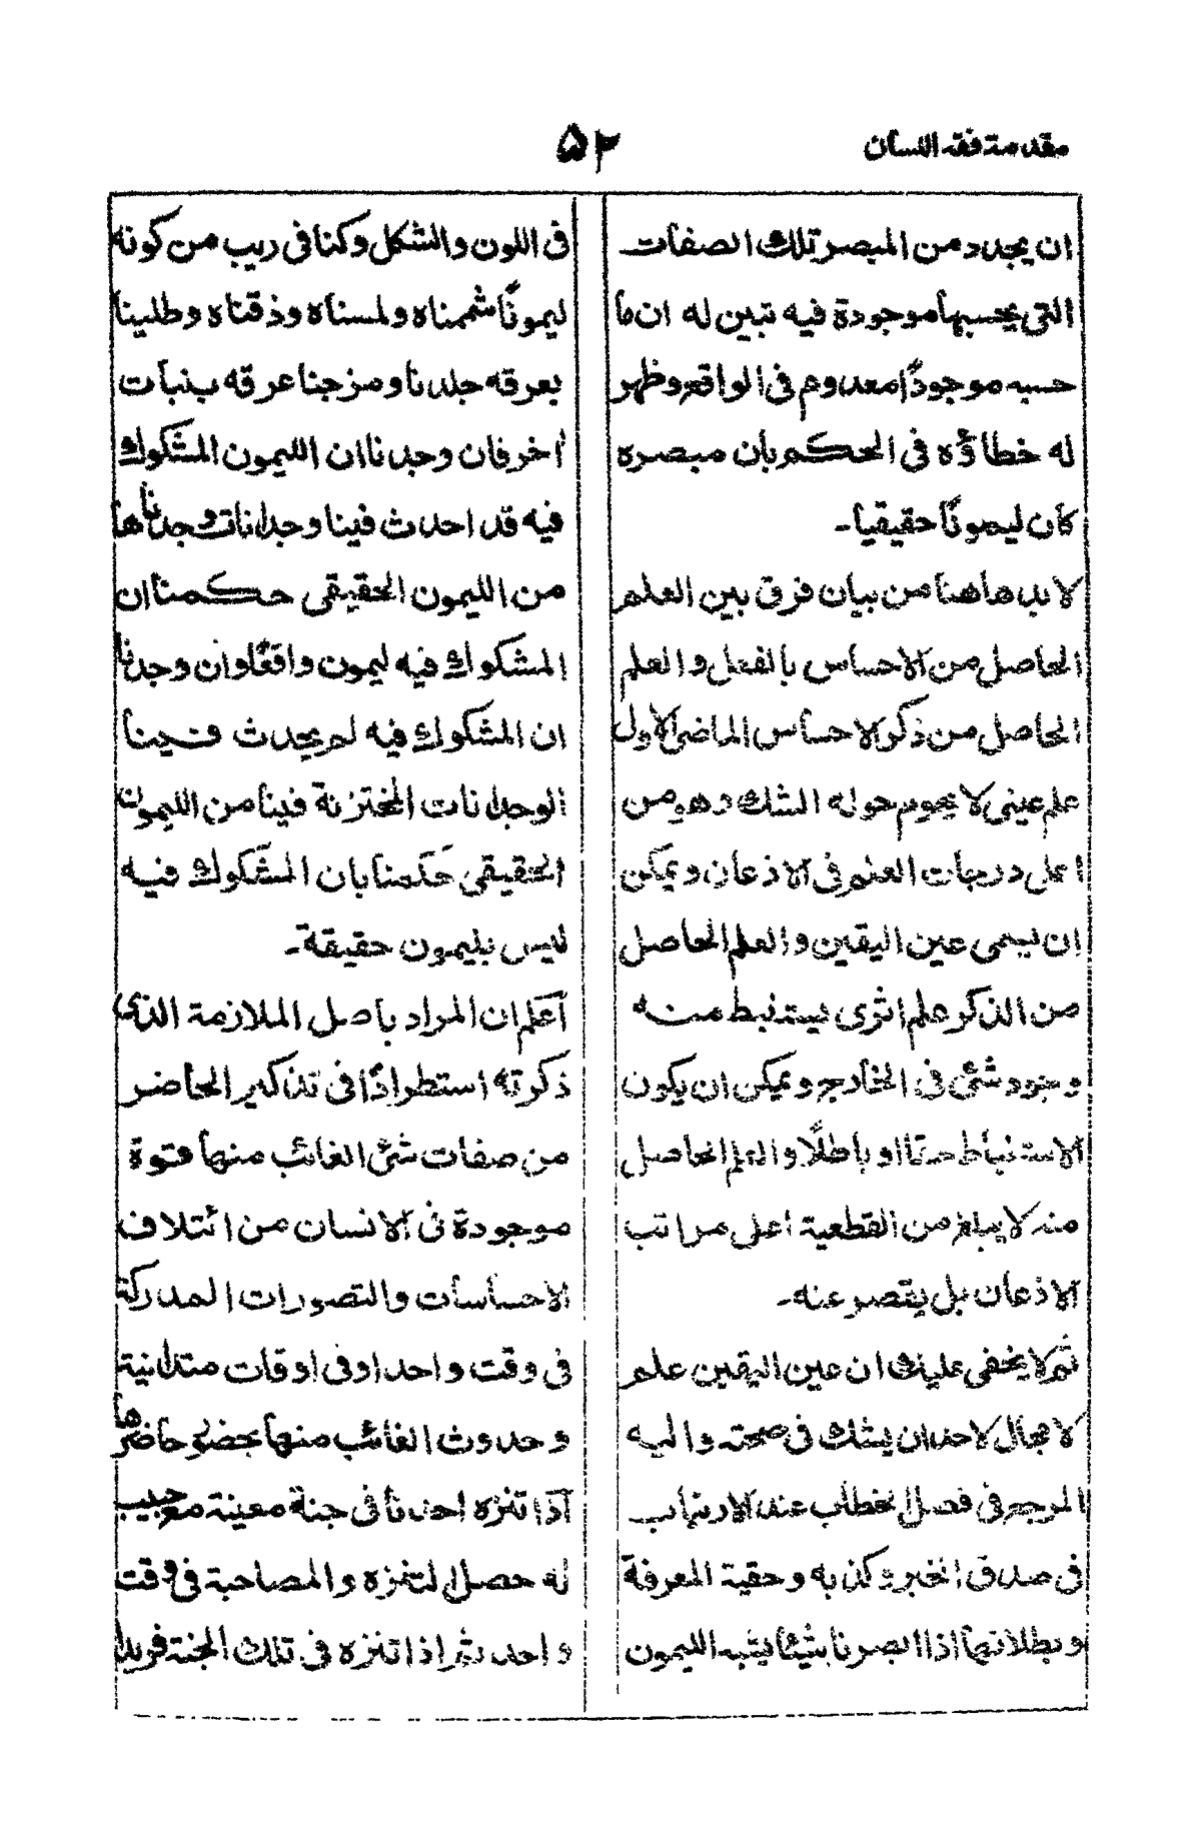 مقدمة فقه اللسان
۵۲
ان يجدد من المبصر تلك الصفات
التى يحسبها موجودة فيه تبين له ان ما
حسبه موجودًا معدوم فى الواقع وظهر
له خطاؤه فى الحكم بان مبصره
كان ليمونًا حقيقيا۔
لا بد هاهنا من بيان فرق بين العلم
الحاصل من الاحساس بالفعل والعلم
الحاصل من ذكر الاحساس الماضى الاول
علم عينى لا يحوم حوله الشك وهو من
اعلى درجات العلم فى الاذعان ويمكن
ان يسمى عين اليقين والعلم الحاصل
من الذكر علم اثرى يستنبط منه
وجود شئ فى الخارج ويمكن ان يكون
الاستنباط حقا او باطلًا والعلم الحاصل
منه لا يبلغ من القطعية اعلى مراتب
الاذعان بل يقصر عنه۔
ثم لا يخفى عليك ان عين اليقين علم
لا مجال لاحدان يشك فى صحته واليه
المرجع فى فصل الخطاب عند الارتياب
فى صدق الخبر وكذبه وحقية المعرفة
وبطلانها اذا ابصرنا شيئا يشبه الليمون
فى اللون والشكل وكنا فى ريب من كونه
ليمونًا شممناه ولمسناه وذقناه وطلينا
بعرقه جلدنا ومزجنا عرقه بنبات
اخر فان وجدنا ان الليمون المشكوك
فيه قد احدث فينا وجدانات وجدناها
من الليمون الحقيقى حكمنا ان
المشكوك فيه ليمون واقعًا وان وجدنا
ان المشكوك فيه لم يحدث فينا
الوجدانات المختزنة فينا من الليمون
الحقيقى حكمنا بان المشكوك فيه
ليس بليمون حقيقة۔
اعلم ان المراد باصل الملازمة الذى
ذكرته استطرادًا فى تذكير الحاضر
من صفات شئ الغائب منها قوة
موجودة فى الانسان من ائتلاف
الاحساسات والتصورات المدركة
فى وقت واحد او فى اوقات متدانية
وحدوث الغائب منها بحضور حاضرها
اذا تنزه احدنا فى جنة معينة مع حبيب
له حصل التنزه والمصاحبة فى وقت
واحد ثم اذا تنزه فى تلك الجنة فريدا